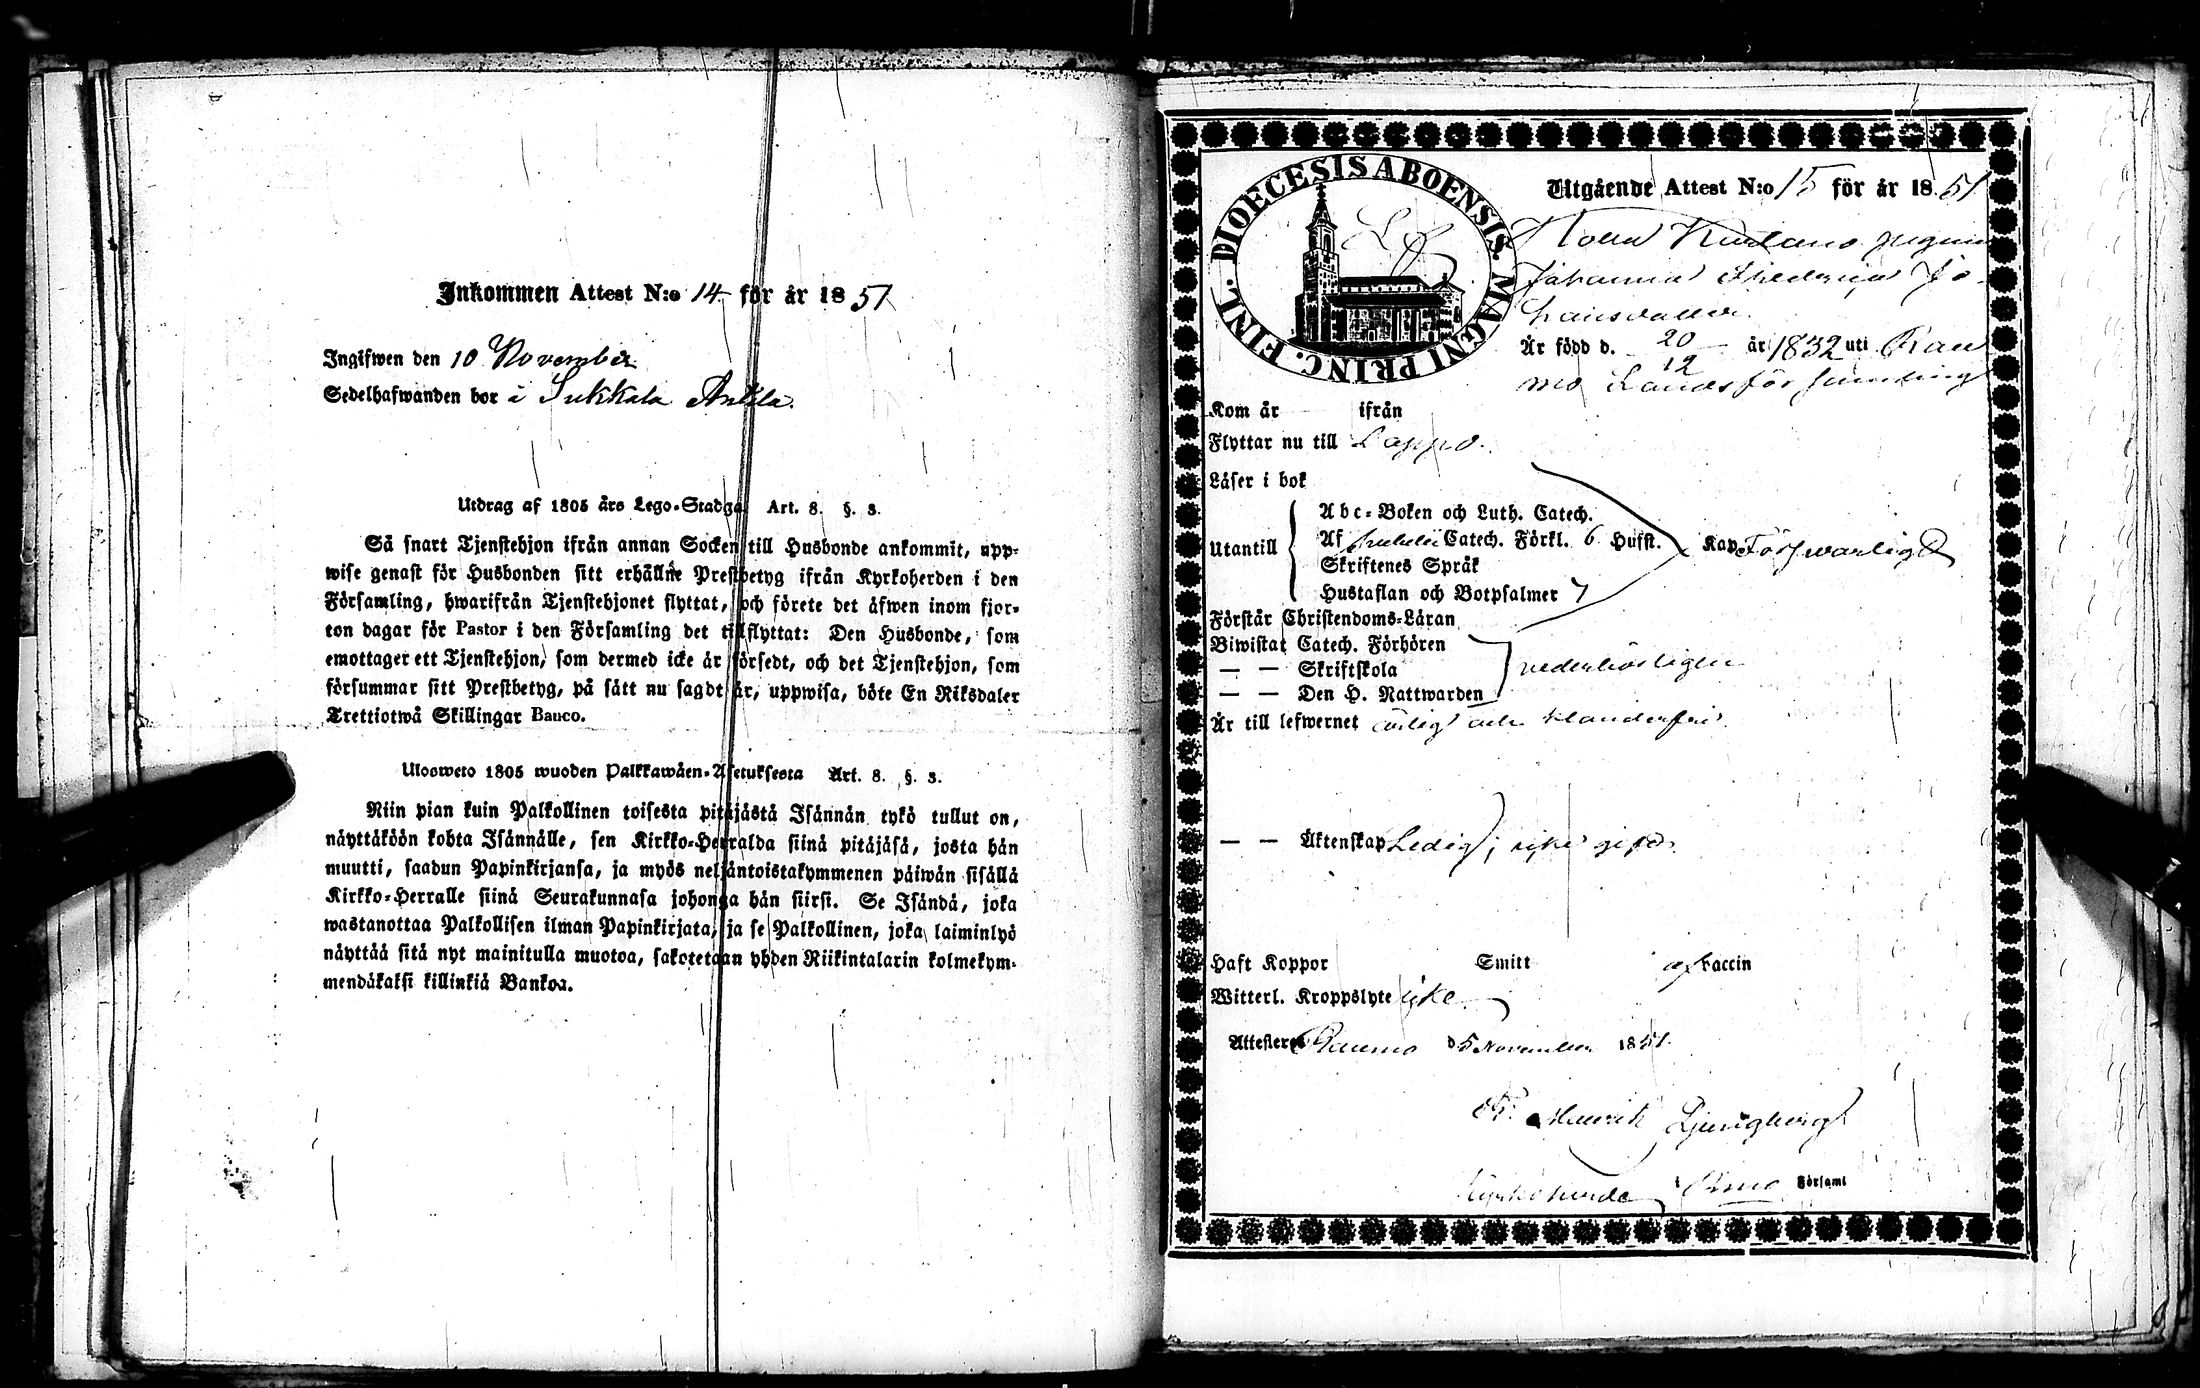 Inkommen Attest N:o 14 för år 1851
Ingifwen den 10 November
Sedelhafwanden bor i Sukkala Anttila.
Utdrag af 1805 års Lego-Stadga Art. 8. §. 3.
Så snart Tjenstehjon ifrån annan Socken till Husbonde ankommit, upp-
wise genast för Husbonden sitt erhållne Prestbetyg ifrån Kyrkoherden i den
Församling, hwarifrån Tjenstehjonet flyttat, och förete det äfwen inom fjor-
ton dagar för Pastor i den Församling det tillflyttat: Den Husbonde, som
emottager ett Tjenstehjon, som dermed icke är försedt, och det Tjenstehjon, som
försummar sitt Prestbetyg, på sätt nu sagdt är, uppwisa, böte En Riksdaler
Trettiotwå Skillingar Banco.
Ulosweto 1805 wuoden Palkkawäen-Asetuksesta Art. 8. §. 3.
Niin pian kuin Palkollinen toisesta pitäjästä Isännän tykö tullut on,
näyttäköön kohta Isännälle, sen Kirkko-Herralda siinä pitäjäsä, josta hän
muutti, saadun Papinkirjansa, ja myös neljäntoistakymmenen päiwän sisällä
Kirkko-Herralle siinä Seurakunnasa johonga hän siirsi. Se Isändä, joka
wastanottaa Palkollisen ilman Papinkirjata, ja se Palkollinen, joka laiminlyö
näyttää sitä nyt mainitulla muotoa, sakotetaan yhden Riikintalarin kolmekym-
mendäkaksi killinkiä Bankoa.
DIOECESIS ABOENSIS. MAGNI PRINC. FINL.
Utgående Attest N:o 15 för år 1851
pigan
Johanna Fredrica Jo-
hansdotter
Är född d. 20/12 år 1832 uti Rau
mo Landsförsamling
Kom år ifrån
Flyttar nu till Lappo.
Läser i bok
Abc-Boken och Luth. Catech.
Utantill Af Catech. Förkl. 6 Hufst. Kap Förswarligt
Skriftenes Språk
Hustaflan och Botpsalmer 7
Förstår Christendoms-Läran
Biwistat Catech. Förhören
— — Skriftskola vederbörligen
— — Den H. Nattwarden
Är till lefwernet ärlig och klanderfri
— — Äktenskap Ledig; icke gift
Haft Koppor Smitt af Vaccin
Witterl. Kroppslyte icke
Attesterar Raumo d 5 November 1851.
Henrik Ljungberg
Kyrkoherde i Församl